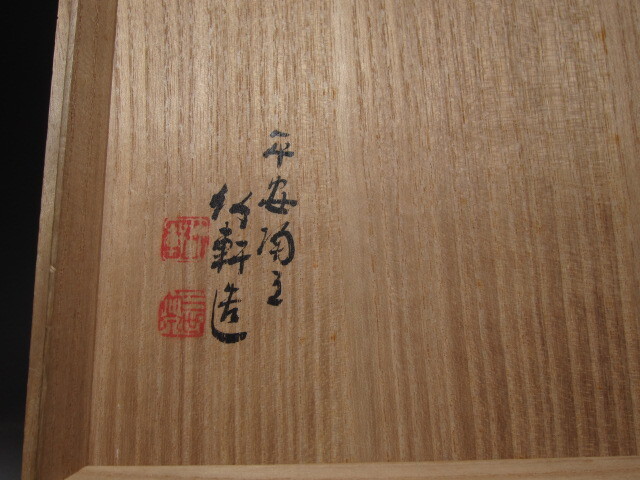 平安陶主
竹軒造